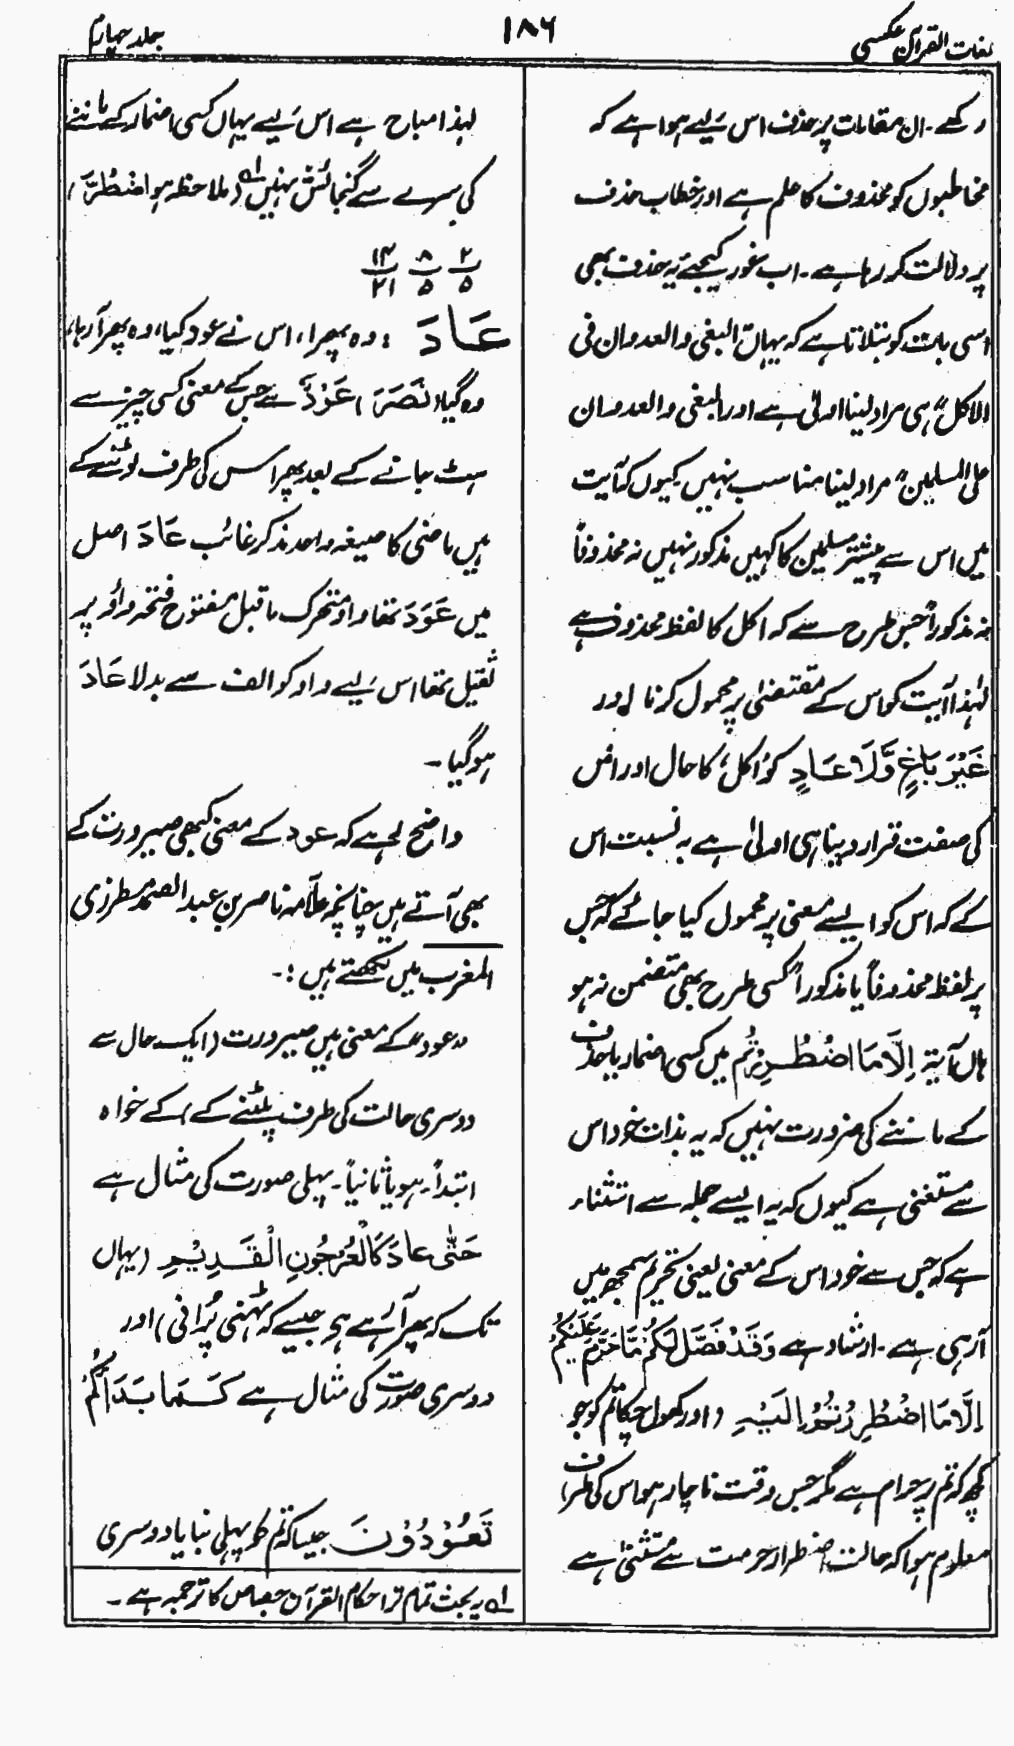 لغات القرآن عکسی
۱۸۶
جلد چہارم
رکھے۔ ان مقامات پر حذف اس لیے ہوا ہے کہ
مخاطبوں کو محذوف کا علم ہے اور خطاب حذف
پر دلالت کر رہا ہے۔ اب غور کیجئے یہ حذف بھی
اسی بات کو بتلاتا ہے کہ یہاں "البغی والعدوان فی
الاکل" ہی مراد لینا اولیٰ ہے اور البغی والعدوان
علی المسلمین" مراد لینا مناسب نہیں کیوں کہ آیت
میں اس سے پیشتر مسلمین کا کہیں مذکور نہیں نہ محذوفاً
نہ مذکوراً جس طرح سے کہ اکل کا لفظ محذوف ہے
لہٰذا آیت کو اس کے مقتضیٰ پر محمول کرنا اور
غَیْرَ بَاغٍ وَّلَا عَادٍ کو 'اکل' کا حال اور اس
کی صفت قرار دینا ہی اولیٰ ہے بہ نسبت اس
کے کہ اس کو ایسے معنی پر محمول کیا جائے کہ جس
پر لفظ محذوفاً یا مذکوراً کسی طرح بھی متضمن نہ ہو
ہاں آیۃ اِلَّا مَا اضْطُرِرْتُم میں کسی اضمار یا حذف
کے ماننے کی ضرورت نہیں کہ یہ بذات خود اس
سے مستغنی ہے کیوں کہ یہ ایسے جملہ سے استثناء
ہے کہ جس سے خود اس کے معنی یعنی تحریم سمجھ میں
آرہی ہے۔ ارشاد ہے وَقَدْ فَصَّلَ لَکُمْ مَّا حَرَّمَ عَلَیْکُمْ
اِلَّا مَا اضْطُرِرْتُمْ اِلَیْہِ (اور کھول چکا تم کو جو
کچھ کہ تم پر حرام ہے مگر جس وقت ناچار ہو اس کی طرف)
معلوم ہوا کہ حالت اضطرار حرمت سے مستثنیٰ ہے
لہذا مباح ہے اس لیے یہاں کسی اضمار کے ماننے
کی سرے سے گنجائش نہیں ۱ہ (ملاحظہ ہو اضْطُرَّ)
۲/۵ ۸/۵ ۱۴/۲۱
عَادَ : وہ پھرا، اس نے عود کیا، وہ پھر آرہا،
وہ گیا (نَصَرَ) عَوْدٌ سے جس کے معنی کسی چیز سے
ہٹ جانے کے بعد پھر اس کی طرف لوٹنے کے
ہیں ماضی کا صیغہ واحد مذکر غائب عَادَ اصل
میں عَوَدَ تھا واو متحرک ماقبل مفتوح فتحہ واو پر
ثقیل تھا اس لیے واو کو الف سے بدلا عَادَ
ہوگیا۔
واضح ہے کہ عود کے معنی کبھی صیرورت کے
بھی آتے ہیں چنانچہ علّامہ ناصر بن عبد الصمد مطرزی
المغرب میں لکھتے ہیں :۔
"عود" کے معنی ہیں صیرورت (ایک حال سے
دوسری حالت کی طرف پلٹنے کے) کے خواہ
ابتدأً ہو یا ثانیاً۔ پہلی صورت کی مثال ہے
حَتّٰی عَادَ کَالْعُرْجُوْنِ الْقَدِیْمِ (یہاں
تک کہ پھر آ رہے ہے جیسے کہ ٹہنی پُرانی) اور
دوسری صورت کی مثال ہے کَمَا بَدَاَکُمْ
تَعُوْدُوْنَ جیسا کہ تم کو پہلی بنایا دوسری
۱ہ یہ بحث تمام تر احکام القرآن جصاص کا ترجمہ ہے۔